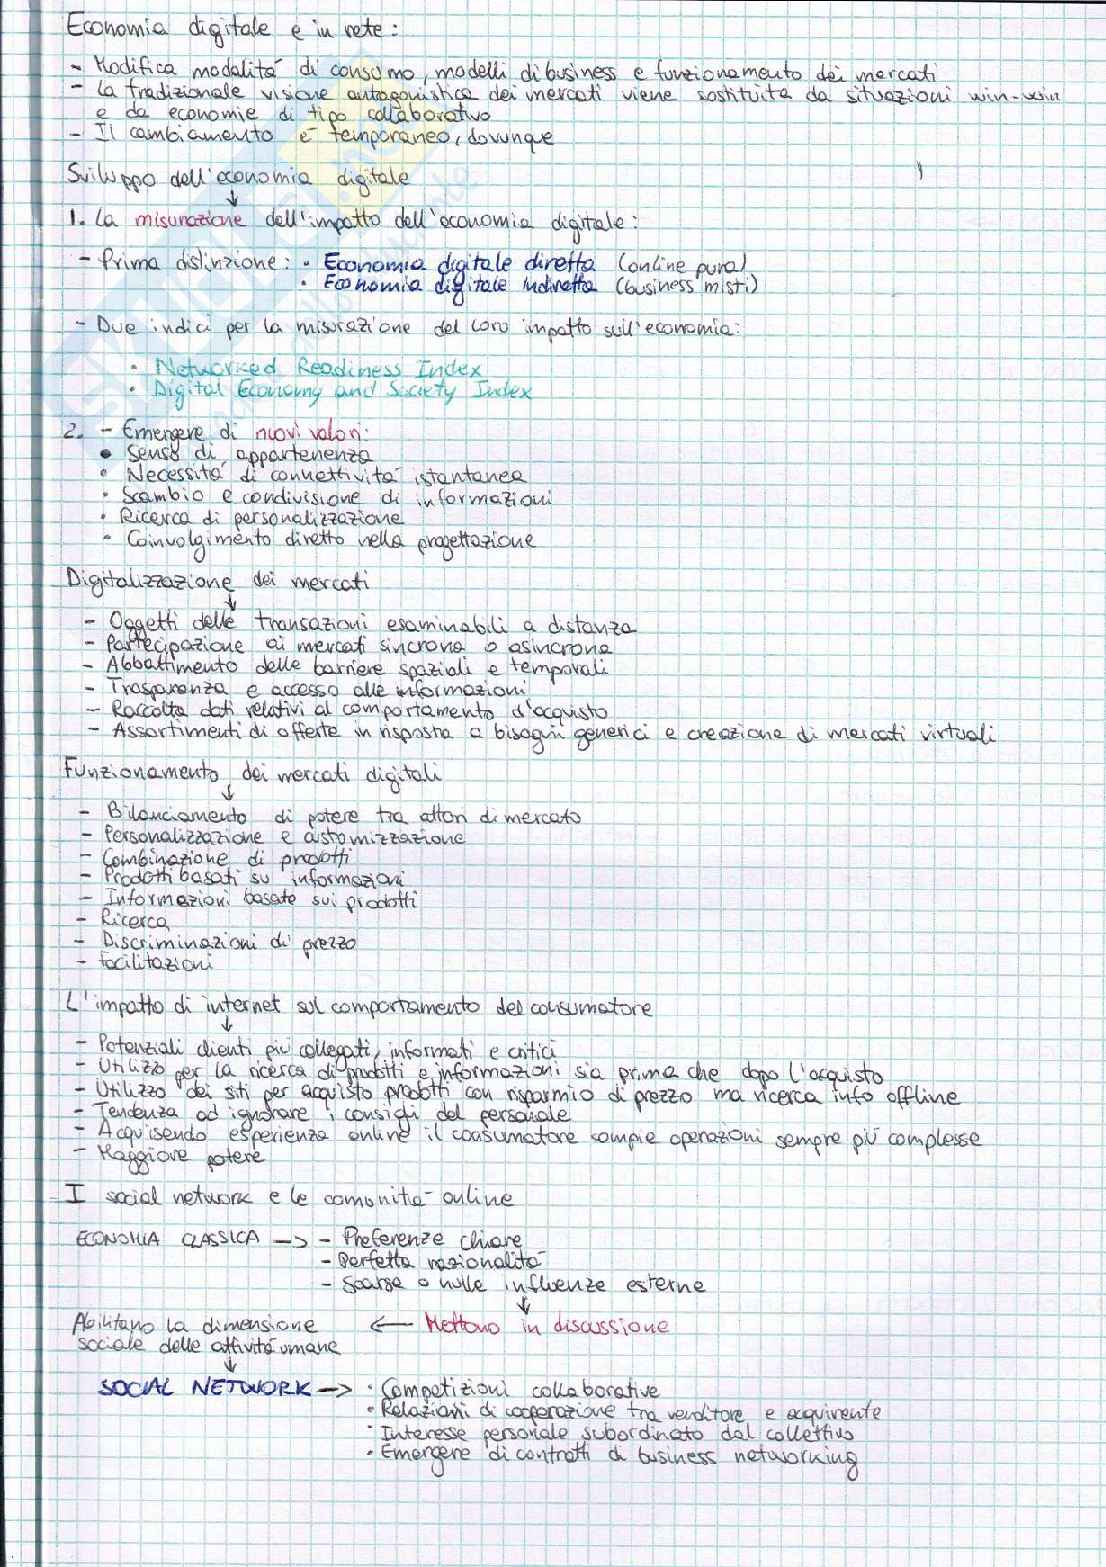 Economia digitale e in rete:
- Modifica modalità di consumo, modelli di business e funzionamento dei mercati
- La tradizionale visione antagonistica dei mercati viene sostituita da situazioni win-win
e da economie di tipo collaborativo
- Il cambiamento è temporaneo, dovunque
Sviluppo dell'economia digitale
↓
1. La misurazione dell'impatto dell'economia digitale:
- Prima distinzione: • Economia digitale diretta (online pura)
• Economia digitale indiretta (business misti)
- Due indici per la misurazione del loro impatto sull'economia:
• Networked Readiness Index
• Digital Economy and Society Index
2. - Emergere di nuovi valori:
• Senso di appartenenza
• Necessità di connettività istantanea
• Scambio e condivisione di informazioni
• Ricerca di personalizzazione
• Coinvolgimento diretto nella progettazione
Digitalizzazione dei mercati
↓
- Oggetti delle transazioni esaminabili a distanza
- Partecipazione ai mercati sincrona o asincrona
- Abbattimento delle barriere spaziali e temporali
- Trasparenza e accesso alle informazioni
- Raccolta dati relativi al comportamento d'acquisto
- Assortimenti di offerte in risposta a bisogni generici e creazione di mercati virtuali
Funzionamento dei mercati digitali
↓
- Bilanciamento di potere tra attori di mercato
- Personalizzazione e customizzazione
- Combinazione di prodotti
- Prodotti basati su informazioni
- Informazioni basate sui prodotti
- Ricerca
- Discriminazioni di prezzo
- Facilitazioni
L'impatto di internet sul comportamento del consumatore
↓
- Potenziali clienti più collegati, informati e critici
- Utilizzo per la ricerca di prodotti e informazioni sia prima che dopo l'acquisto
- Utilizzo dei siti per acquisto prodotti con risparmio di prezzo ma ricerca info offline
- Tendenza ad ignorare i consigli del personale
- Acquisendo esperienza online il consumatore compie operazioni sempre più complesse
- Maggiore potere
I social network e le comunità online
ECONOMIA CLASSICA -> - Preferenze chiare
- Perfetta razionalità
- Scarse o nulle influenze esterne
↓
Abilitano la dimensione <- Mettono in discussione
sociale delle attività umane
↓
SOCIAL NETWORK -> • Competizioni collaborative
• Relazioni di cooperazione tra venditore e acquirente
• Interesse personale subordinato dal collettivo
• Emergere di contratti di business networking